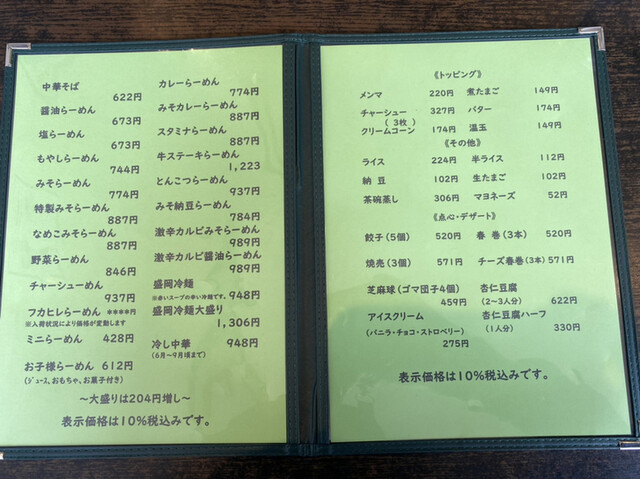 中華そば 622円
醤油らーめん 673円
塩らーめん 673円
もやしらーめん 744円
みそらーめん 774円
特製みそらーめん 887円
なめこみそらーめん 887円
野菜らーめん 846円
チャーシューめん 937円
フカヒレらーめん ****円
※入荷状況により価格が変動します
ミニらーめん 428円
お子様らーめん 612円
(ジュース、おもちゃ、お菓子付き)
カレーらーめん 774円
みそカレーらーめん 887円
スタミナらーめん 887円
牛ステーキらーめん 1,223
とんこつらーめん 937円
みそ納豆らーめん 784円
激辛カルビみそらーめん 989円
激辛カルビ醤油らーめん 989円
盛岡冷麺
※赤いスープの辛い冷麺です。 948円
盛岡冷麺大盛り 1,306円
冷し中華 948円
(6月~9月頃まで)
~大盛りは204円増し~
表示価格は10%税込みです。
《トッピング》
メンマ 220円 煮たまご 149円
チャーシュー 327円 バター 174円
(3枚)
クリームコーン 174円 温玉 149円
《その他》
ライス 224円 半ライス 112円
納豆 102円 生たまご 102円
茶碗蒸し 306円 マヨネーズ 52円
《点心・デザート》
餃子(5個) 520円 春巻(3本) 520円
焼売(3個) 571円 チーズ春巻(3本) 571円
芝麻球(ゴマ団子4個) 459円
杏仁豆腐
(2~3人分) 622円
アイスクリーム
(バニラ・チョコ・ストロベリー)
275円
杏仁豆腐ハーフ
(1人分) 330円
表示価格は10%税込みです。